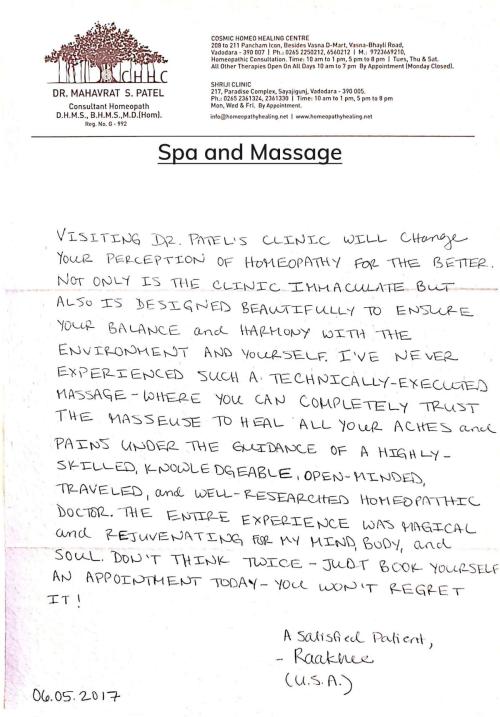 CHHC
DR. MAHAVRAT S. PATEL
Consultant Homeopath
D.H.M.S., B.H.M.S.,M.D.(Hom).
Reg. No. G - 992
COSMIC HOMEO HEALING CENTRE
208 to 211 Pancham Icon, Besides Vasna D-Mart, Vasna-Bhayli Road,
Vadodara - 390 007 | Ph.: 0265 2250212, 6560212 | M.: 9723669210,
Homeopathic Consultation. Time: 10 am to 1 pm, 5 pm to 8 pm | Tues, Thu & Sat.
All Other Therapies Open On All Days 10 am to 7 pm By Appointment (Monday Closed).
SHRIJI CLINIC
217, Paradise Complex, Sayajigunj, Vadodara - 390 005.
Ph.: 0265 2361324, 2361330 | Time: 10 am to 1 pm, 5 pm to 8 pm
Mon, Wed & Fri. By Appointment.
info@homeopathyhealing.net | www.homeopathyhealing.net
Spa and Massage
VISITING DR. PATEL'S CLINIC WILL Change
YOUR PERCEPTION OF HOMEOPATHY FOR THE BETTER.
NOT ONLY IS THE CLINIC IMMACULATE BUT
ALSO IS DESIGNED BEAUTIFULLY TO ENSURE
YOUR BALANCE and HARMONY WITH THE
ENVIRONMENT AND YOURSELF. I'VE NEVER
EXPERIENCED SUCH A TECHNICALLY-EXECUTED
MASSAGE - WHERE YOU CAN COMPLETELY TRUST
THE MASSEUSE TO HEAL ALL YOUR ACHES and
PAINS UNDER THE GUIDANCE OF A HIGHLY-
SKILLED, KNOWLEDGEABLE, OPEN-MINDED,
TRAVELED, and WELL-RESEARCHED HOMEOPATHIC
DOCTOR. THE ENTIRE EXPERIENCE WAS MAGICAL
and REJUVENATING FOR MY MIND, BODY, and
SOUL. DON'T THINK TWICE - JUST BOOK YOURSELF
AN APPOINTMENT TODAY - YOU WON'T REGRET
IT!
A Satisfied Patient,
- Raakhee
(U.S.A.)
06.05.2017